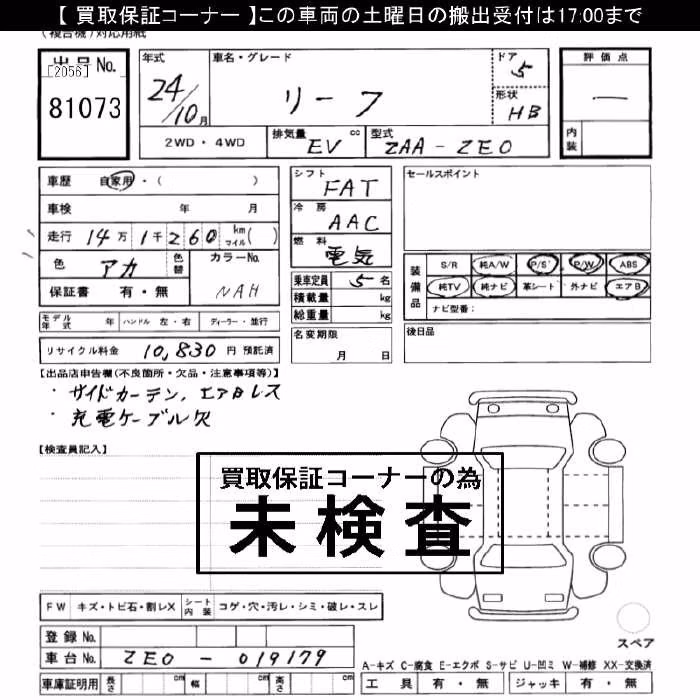 【 買取保証コーナー 】この車両の土曜日の搬出受付は17:00まで
(複合機)対応用紙
出品No. [2056] 81073
年式 24/10月
車名・グレード リーフ
ドア 5
形状 HB
評価点 —
内装
2WD・4WD
排気量 EV cc
型式 ZAA-ZE0
車歴 自家用・( )
車検 年 月
走行 14万1千260 km マイル( )
色 アカ 色替
カラーNo. NAH
保証書 有・無
シフト FAT
冷房 AAC
燃料 電気
乗車定員 5名
積載量 kg
総重量 kg
名変期限 月 日
セールスポイント
装備品
S/R 純A/W P/S P/W ABS
純TV 純ナビ 革シート 外ナビ エアB
ナビ型番:
後日品
モデル年式 年 ハンドル 左・右 ディーラー・並行
リサイクル料金 10,830 円 預託済
【出品店申告欄(不良箇所・欠品・注意事項等)】
・サイドカーテン、エアBレス
・充電ケーブル欠
【検査員記入】
買取保証コーナーの為
未検査
FW キズ・トビ石・割レX シート内装 コゲ・穴・汚レ・シミ・破レ・スレ
登録No.
車台No. ZE0-019179
車庫証明用 長さ cm 幅 cm 高さ cm
スペア
A-キズ C-腐食 E-エクボ S-サビ U-凹ミ W-補修 XX-交換済
工具 有・無 ジャッキ 有・無